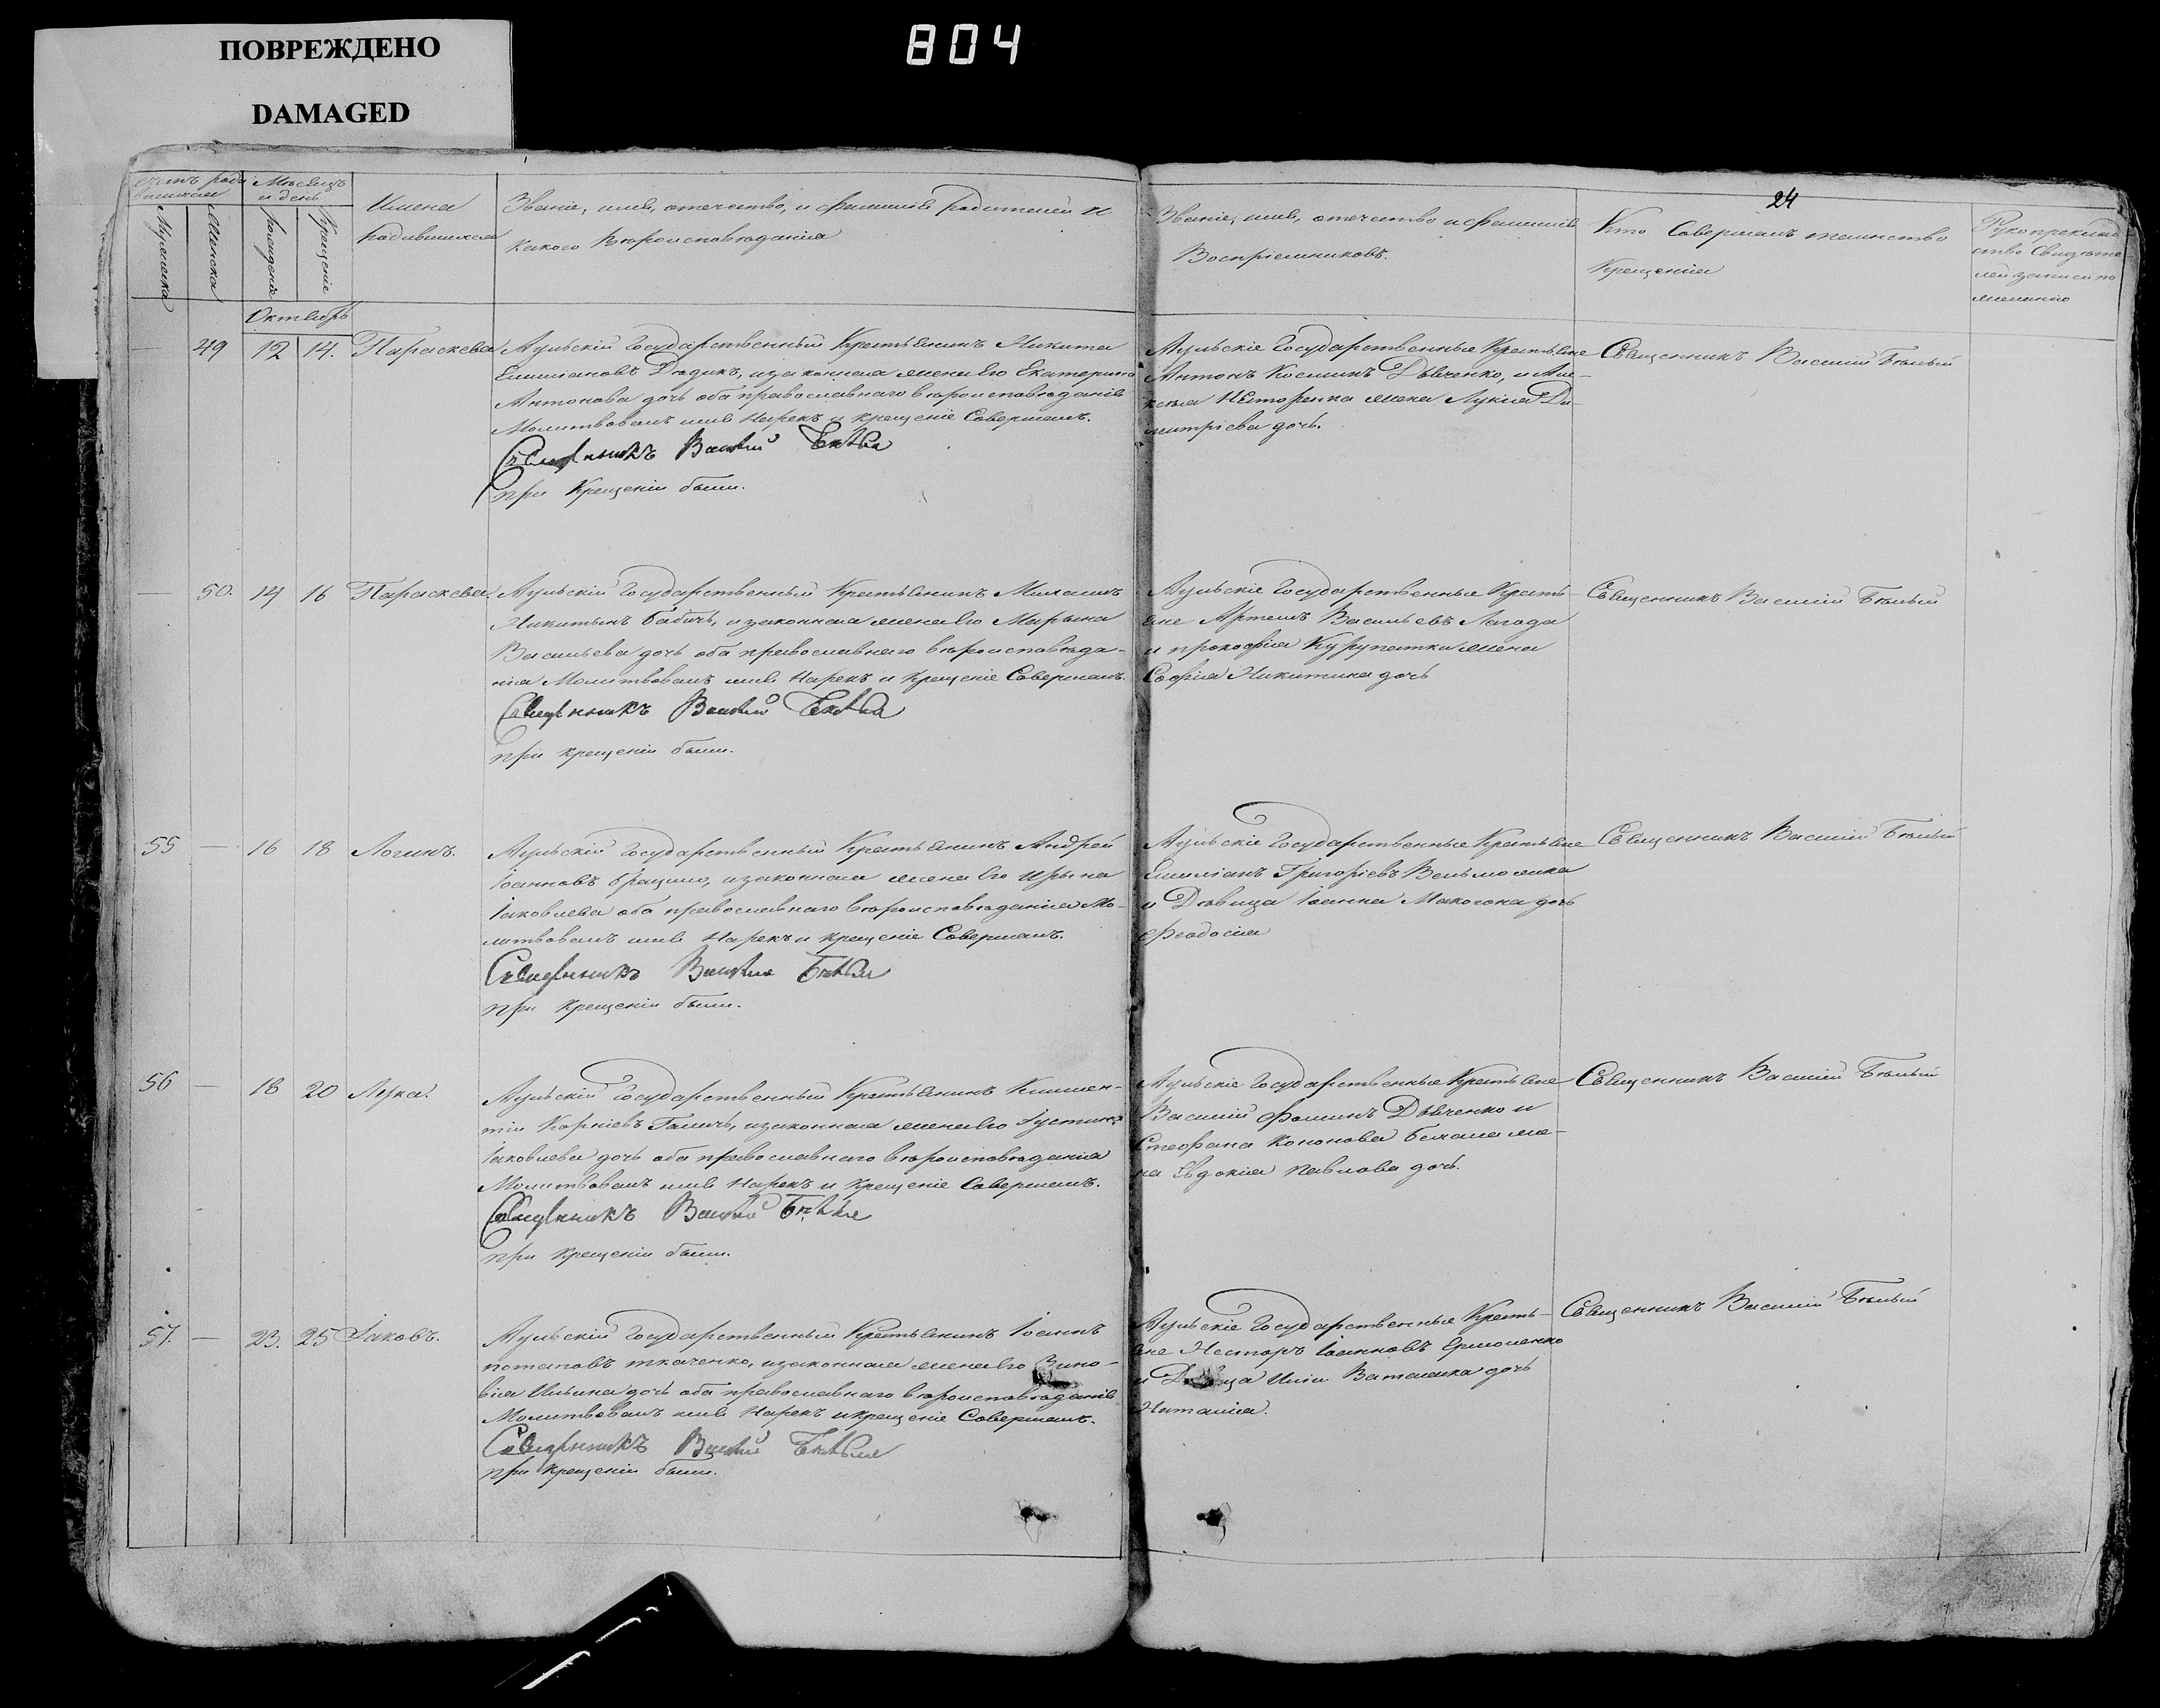 ПОВРЕЖДЕНО
DAMAGED
804
24
Счетъ роди
Мѣсяцъ
и день
Мужеска
Женска
Рожденіе
Крещеніе
Имена
родившихся
Званіе, имя, отечество, и фамилія родителей и
какого вѣроисповѣданія
Званіе, имя, отечество и фамилія
Воспріемниковъ.
Кто Совершалъ таинство
Крещенія
Рукоприклад
ство Свидѣте
лей записи по
желанію
Октябрь
— 49 12 14. Параскева
Аульскій Государственный Крестьянинъ Никита
Емиліановъ Дудикъ, и законная жена Его Екатерина
Антонова дочь оба православнаго вѣроисповѣданія
Молитвовалъ имя Нарекъ и крещеніе Совершалъ.
Священникъ Василій Бѣлый
при Крещеніи были.
Аульскіе Государственные Крестьяне
Антонъ Косминъ Дьяченко, и Але-
ксѣя Нѣсторенка жена Лукія Ди-
митріева дочь.
Священникъ Василій Бѣлый
— 50. 14 16 Параскева.
Аульскій Государственный Крестьянинъ Михаилъ
Никитинъ Бабичъ, и законная жена Его Марына
Васильева дочь оба православнаго вѣроисповѣда-
нія Молитвовалъ имя Нарекъ и Крещеніе Совершалъ.
Священникъ Василій Бѣлый
при крещеніи были.
Аульскіе Государственные Кресть-
яне Артемъ Васильевъ Лагода
и прокофія Курупатки жена
Софія Никитина дочь
Священникъ Василій Бѣлый
55 — 16 18 Логинъ.
Аульскій Государственный Крестьянинъ Андрей
Іоанновъ Брацило, и законная жена Его Ирына
Іаковлева оба православнаго вѣроисповѣданія Мо-
литвовалъ имя Нарекъ и крещеніе Совершалъ.
Священникъ Василій Бѣлый
при Крещеніи были.
Аульскіе Государственные Крестьяне
Емиліанъ Григоріевъ Вельможка
и Дѣвица Іоанна Макогона дочь
Феодосія
Священникъ Василій Бѣлый
56 — 18 20 Лука.
Аульскій Государственный Крестьянинъ Климен-
тій Корніевъ Галичъ, и законная жена Его Іустина
Іаковлева дочь оба православнаго вѣроисповѣданія
Молитвовалъ имя Нарекъ и Крещеніе Совершалъ.
Священникъ Василій Бѣлый
при крещеніи были.
Аульскіе Государственные Крестьяне
Василій Фоминъ Дьяченко и
Стефана Кононова Бахала же-
на Евдокія Павлова дочь.
Священникъ Василій Бѣлый
57. — 23. 25 Іаковъ.
Аульскій Государственный Крестьянинъ Іоаннъ
потаповъ ткаченко, и законная жена Его Зино-
вія Ильина дочь оба православнаго вѣроисповѣданія
Молитвовалъ имя Нарекъ и крещеніе Совершалъ.
Священникъ Василій Бѣлый
при крещеніи были.
Аульскіе Государственные Кресть-
яне Несторъ Іоанновъ Ермоленко
и Дѣвица Иліи Ваташка дочь
Наталія.
Священникъ Василій Бѣлый